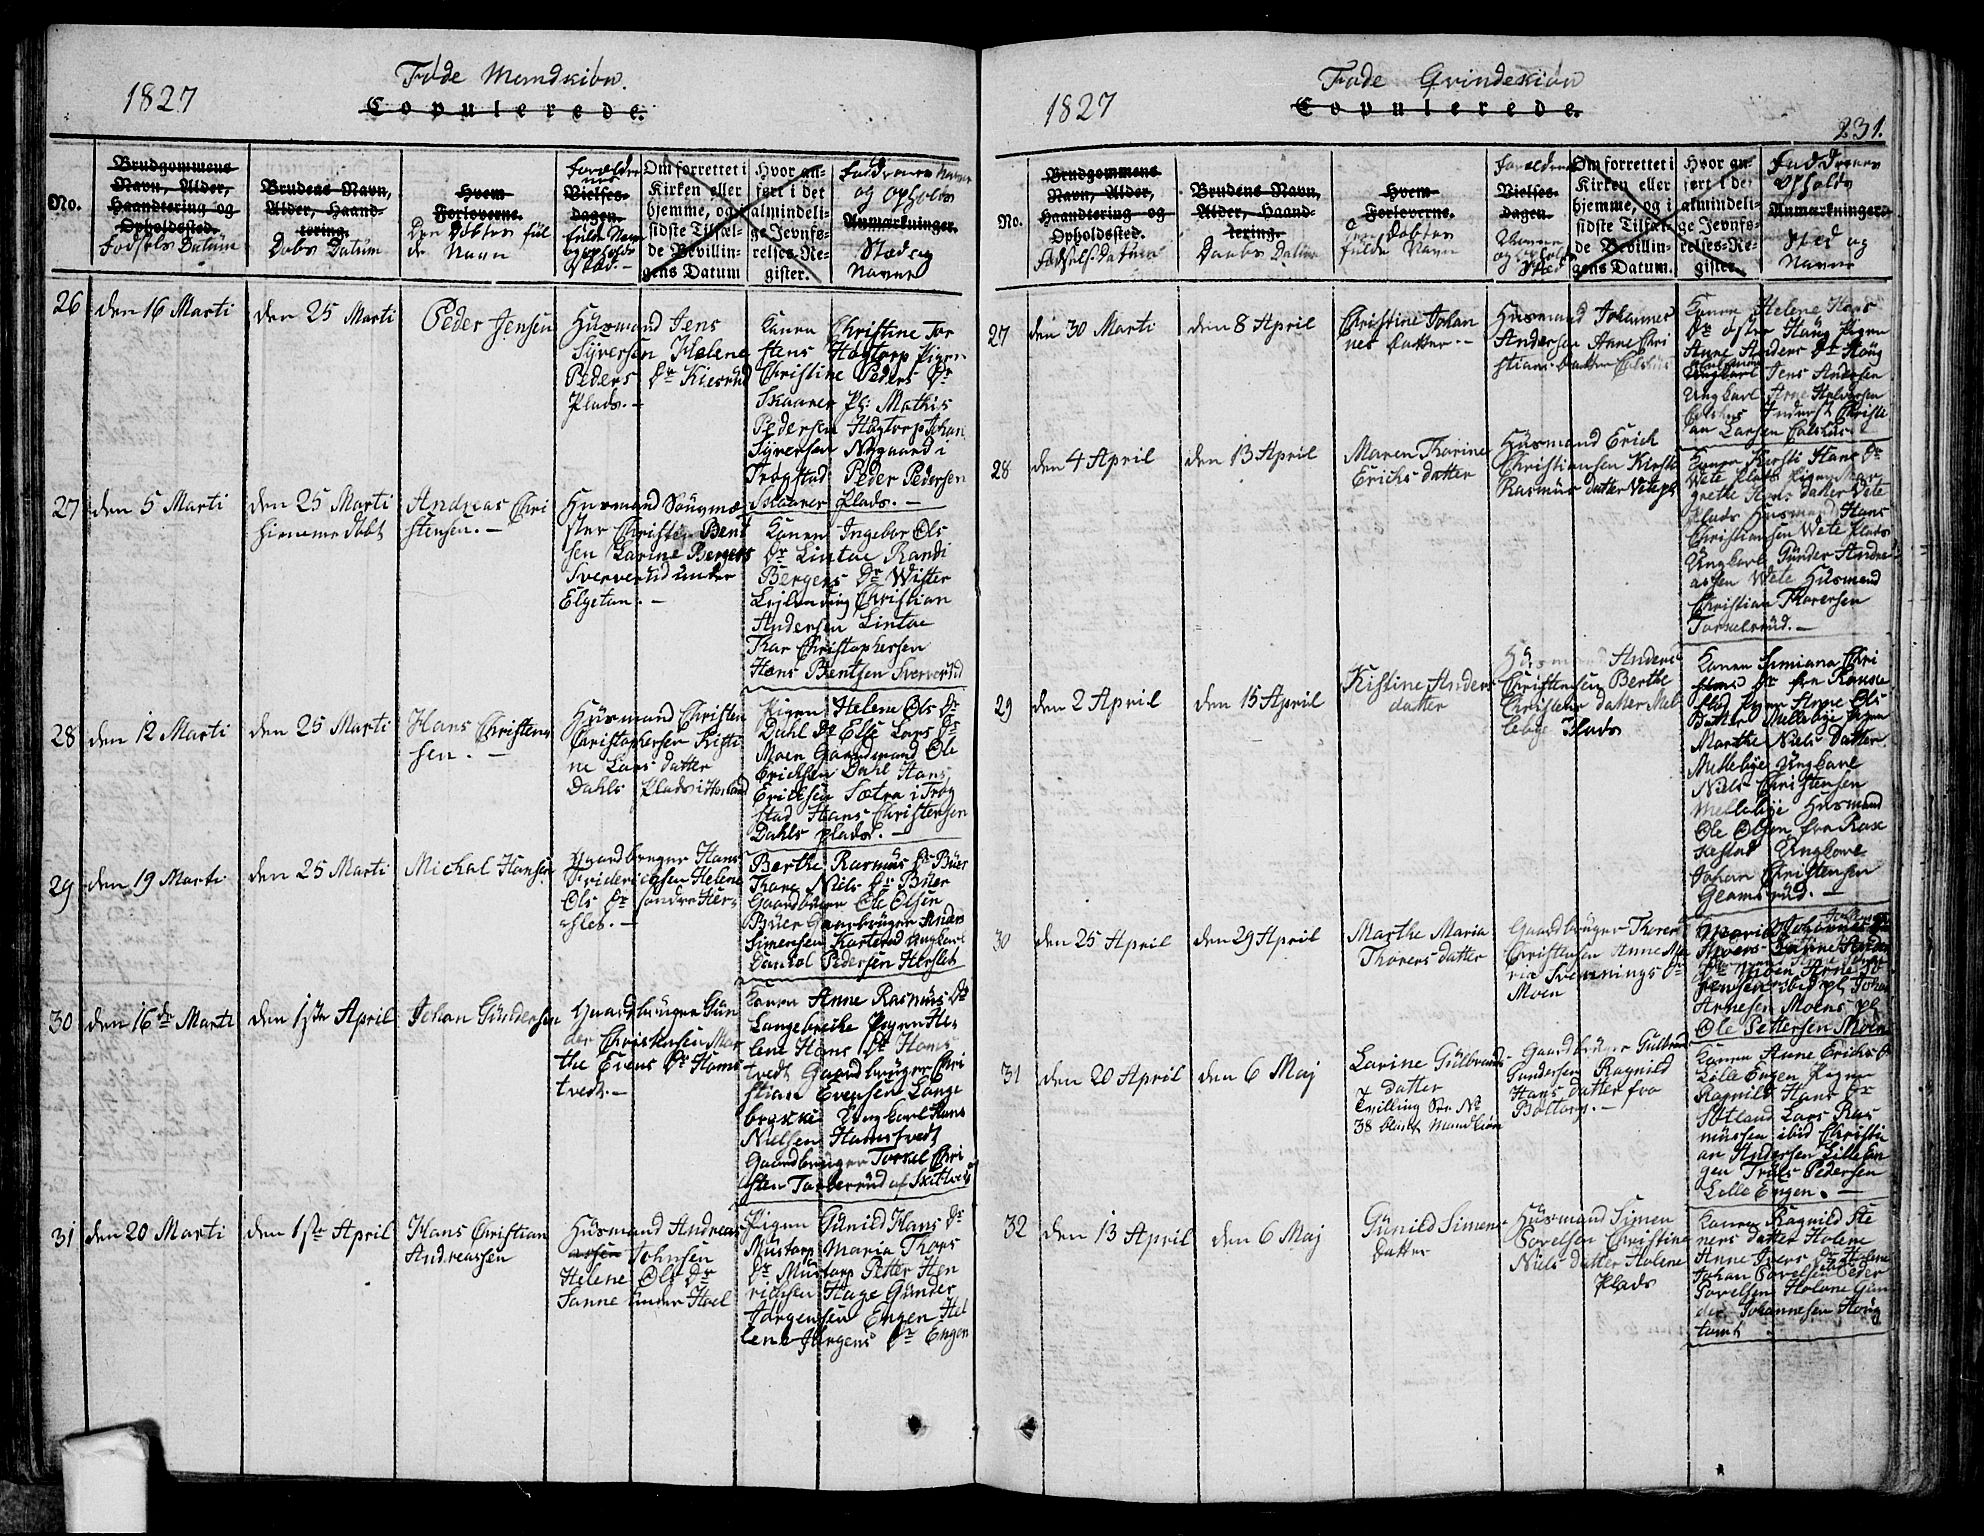 1827
Føde Mandkiøn.
Copulerede.
No.
Brudgommens
Navn, Alder,
Haandtering og
Opholdssted.
Fødsels Datüm
Brudens Navn,
Alder, Haand-
tering.
Dobs Datüm
Hvem
Forloverne.
Den Døbtes fül
de Navn
Forældre
nes
Vielses-
Dagen.
fulde Navn
og opholds
Stæd.-
Om forrettet i
Kirken eller
hjemme, og i
sidste Tilfæl-
de Bevillin-
gens Datum
Hvor an-
ført i det
almindeli-
ge Jevnfø-
relses-Re-
gister.
Faddrenes Navne
og Opholds
Anmærkninger.
Stæd og
Navne
26
den 16 Marti
den 25 Marti
Peder Jensen
Hüsmand Jens
Syversen Hælene
Peders Dr Kiesrüd
Plads.-
Konen Christine Tor
stens Høgtorp Pigen
Christine Peders Dr
Skaaner Pl: Mathis
Pedersen Høgtorp Johan
Syversen Nygaard i
Trøgstad Peder Pedersen
Skaaner Plads.-
27
den 5 Marti
den 25 Marti
hiemmedøbt
Andreas Chri
stensen.-
Husmand Søugmæ
ster Christen Bent
sen Larine Bergers
Sververud under
Elgetun.-
Konen Ingebor Ols
Dr Lintoe Randi
Bergens Dr Wister
Christian
Andersen Lintoe
Thor Christophersen
Hans Bentsen Sververüd
28
den 12 Marti
den 25 Marti
Hans Christen
sen.-
Hüsmand Christen
Christophersen Kisti
ne Lars datter
Dahls Plads i Hovland
Pigen Helene Ols Dr
Dahl Dr Else Lars Dr
Moen Gaardmand Ole
Ericksen Dahl Hans
Ericksen Sætra i Trøg
stad Hans Christensen
Dahls plads.-
29
den 19 Marti
den 25 Marti
Michal Hansen
Gaardbruger Hans
Friderichsen Helene
Ols Dr søndre Her-
slet.-
Berthe Rasmüs Dr Büer
Thore Niels Dr Büer
Gaardbruger Ole Olsen
Büer Gaardbruger Anders
Simensen Karterud Ungkarl
Dankel Pedersen Herslet
30
den 16de Marti
den 1ste April
Johan Gündersen
Gaardbrüger Gün
der Christensen Mar
the Evens Dr Hams
tvedt.-
Konen Anne Rasmüs Dr
Langebrekke Pigen He-
lene Hans Dr Hams
tvedt Gaardbrüger Chri
stian Evensen Lange
brekke Ungkarl Hans
Nielsen Hamstvedt
Gaardbruger Torkel Chri
sten Tosserud af Skiptvedt
31
den 20 Marti
den 1ste April
Hans Christian
Andreassen
Hüsmand Andreas
Johnsen
Helene Ols Dr
Sanne ünder Hoel
Pigen Günild Hans Dr
Müstorp Maria Thors
Dr Müstorp Petter Hen
richsen Hage Günder
Jørgensen Engen Hel
lene Jørgens Dr Engen
1827
Føde Qvindekiøn
Copulerede.
231.
No.
Brudgommens
Navn, Alder,
Haandtering og
Opholdssted.
Fødsels Datum
Brudens Navn,
Alder, Haand-
tering.
Daabs Datum
Hvem
Forloverne.
Den Døbtes
fulde Navn
Forældrenes
Vielses-
Dagen.
Navne
og Opholds
Stæd
Om forrettet i
Kirken eller
hjemme, og i
sidste Tilfæl-
de Bevillin-
gens Datum.
Hvor an-
ført i det
almindeli-
ge Jevnfø-
relses-Re-
gister.
Faddrenes
Opholds
Anmærkninger.
Stæd og
Navne
27
den 30 Marti
den 8 April
Christine Johan
nes Datter.-
Husmand Johannes
Andersen Anne Chri
stians Datter
Konen Helene Hans
Dr Øster Haüg Pigen
Anne Anders Dr Haüg
Ungkarl Jens Andersen
Ungkarl Arne Halvorsen
Inderst Christi
an Larsen
28
den 4 April
den 13 April
Maren Thorine
Erichs datter
Hüsmand Erich
Christiansen Kirsti
Rasmüs datter Vetepl
Konen Kirsti Hans Dr
Wete Plads Pigen Mar
grethe Hans datter Vete
Plads Husmand Hans
Christiansen Wete Plads
Ungkarl Günder Andre
assen Wete Husmand
Christian Thoresen
Torskelsrud.-
29
den 2 April
den 15 April
Kistine Anders
datter
Hüsmand Anders
Christensen Berthe
Christens datter Mel
lebye Plads
Konen Simiana Chri
stens Dr fra Rause
stad Pigen Anne Ols
Datter Mellebye Pigen
Marthe Niels Datter
Mellebye Ungkarl
Niels Christensen
Mellebye Husmand
Ole Olsen fra Raue
kestad Ungkarl
Johan Christensen
Glomsrüd.-
30
den 25 April
den 29 April
Marthe Maria
Thorers datter
Gaardbrüger Thorer
Christensen Anne Ma
ria Svennings Dr
Moen
Johannes
Dr Moen Arne To
rensen ibid pl. Johan
Arnesen Moens pl
Ole Pettersen Moen
31
den 20 April
den 6 Maj
Larine Gülbrands
datter
Tvilling See No
38 blant Mandkiøn
Gaardbrüger Gulbrand
Gundersen Ragnild
Hans datter fra
Boltorp.-
Konen Anne Erichs Dr
Lille Engen Pigen
Ragnild Hans Dr
Søtland Lars Ras
müssen ibid Christi
an Andersen Lille En
gen Trüls Pedersen
Lille Engen.-
32
den 13 April
den 6 Maj
Günild Simens
datter
Hüsmand Simen
Povelsen Christine
Niels datter Holene
Plads
Konen Ragnild Ste
ners datter Holene
Anne Ivers Dr Holene
Johan Povelsen Peder
Povelsen Holene Gün
der Johannesen Haüg
tomt